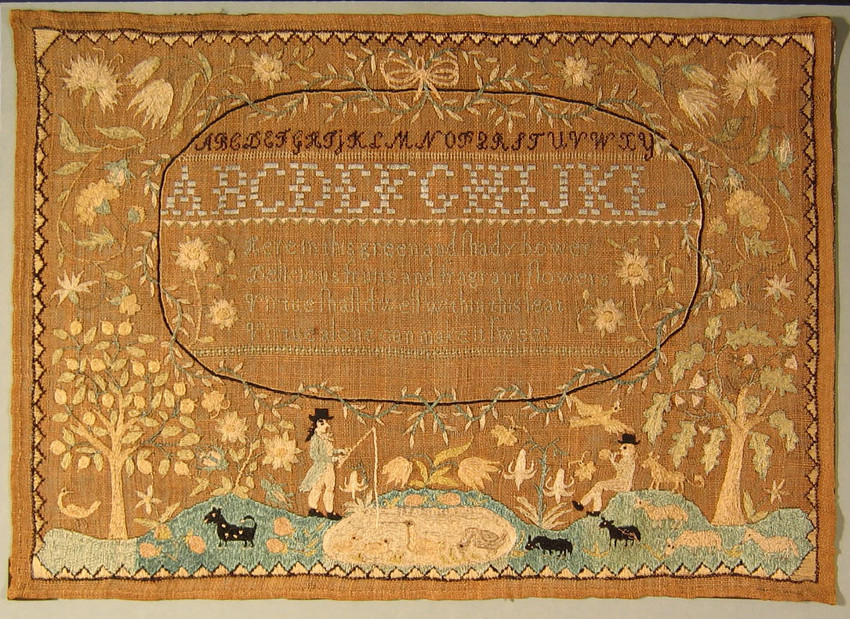 ABCDEFGHIJKLMNOPQRSTUVWXY
ABCDEFGHIJKL
Here in this green and ſhady bower
Delicious fruits and fragrant flowers
Virtue ſhall dwell within this ſeat
Virtue alone can make it ſweet